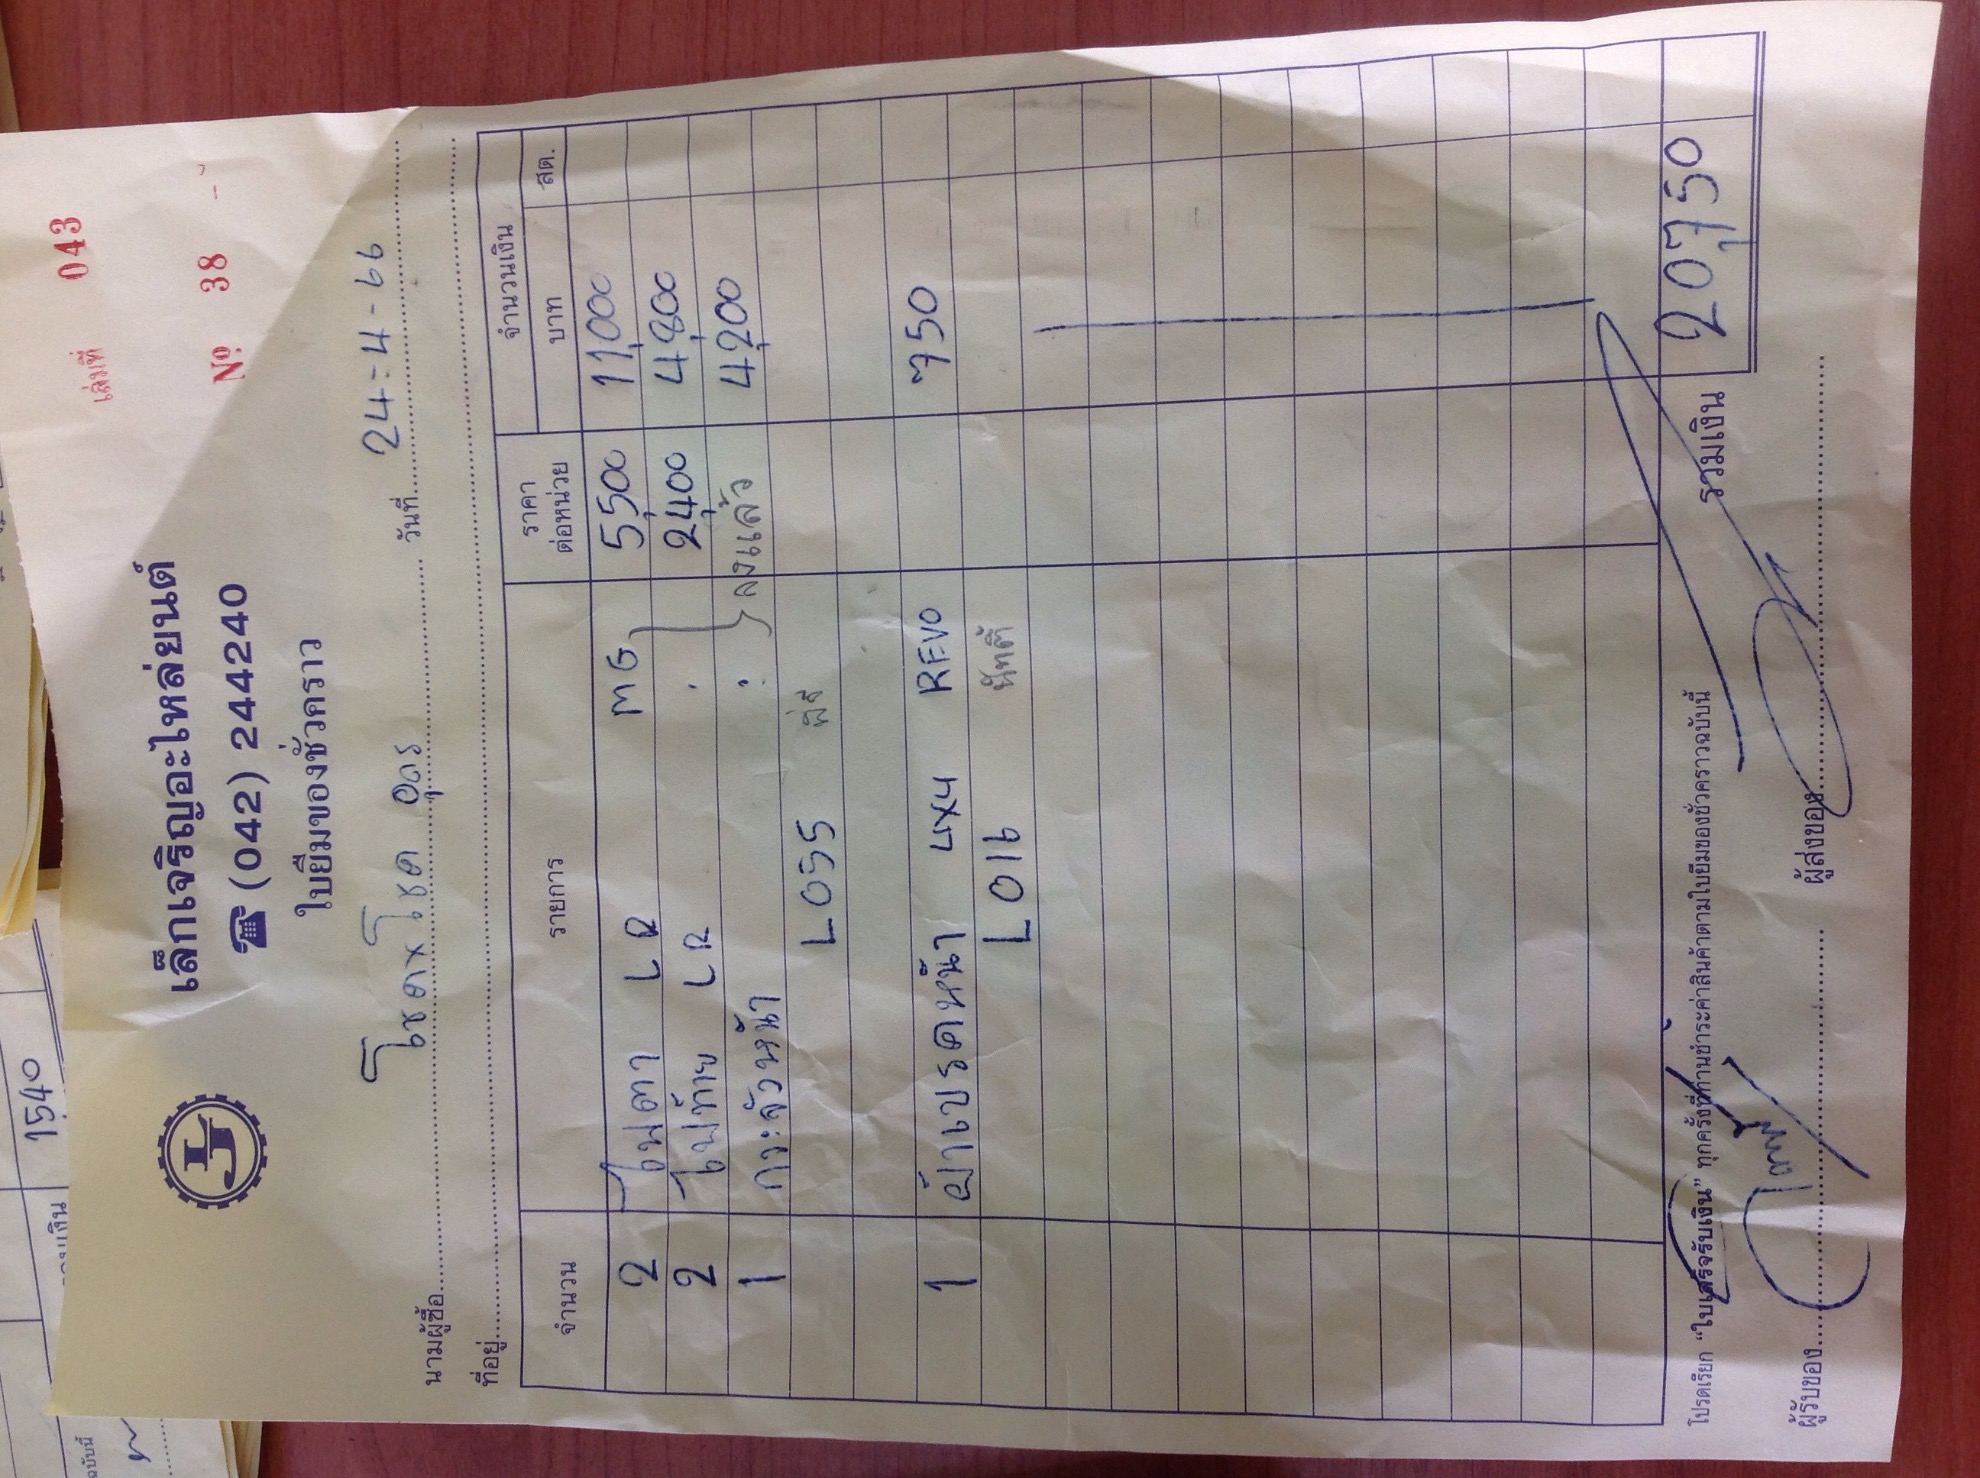 เล่มที่ 043
เล็กเจริญอะไหล่ยนต์
☎ (042) 244240
№ 38
ใบยืมของชั่วคราว
นามผู้ซื้อ โชคxโชค อุดร วันที่ 24-4-66
ที่อยู่
จำนวน รายการ ราคาต่อหน่วย จำนวนเงิน
บาท สต.
2 ไฟตา LR MG 5,500 11,000
2 ไฟท้าย LR 2,400 4,800
1 กระจังหน้า ลงแล้ว 4,200
L055
1 ผ้าเบรคหน้า 4x4 REVO 750
L016
รวมเงิน 20,750
โปรดเรียก “ใบเสร็จรับเงิน” ทุกครั้งที่ท่านชำระค่าสินค้าตามใบยืมของชั่วคราวฉบับนี้
ผู้รับของ ผู้ส่งของ
1,540
รวมเงิน
ฉบับนี้